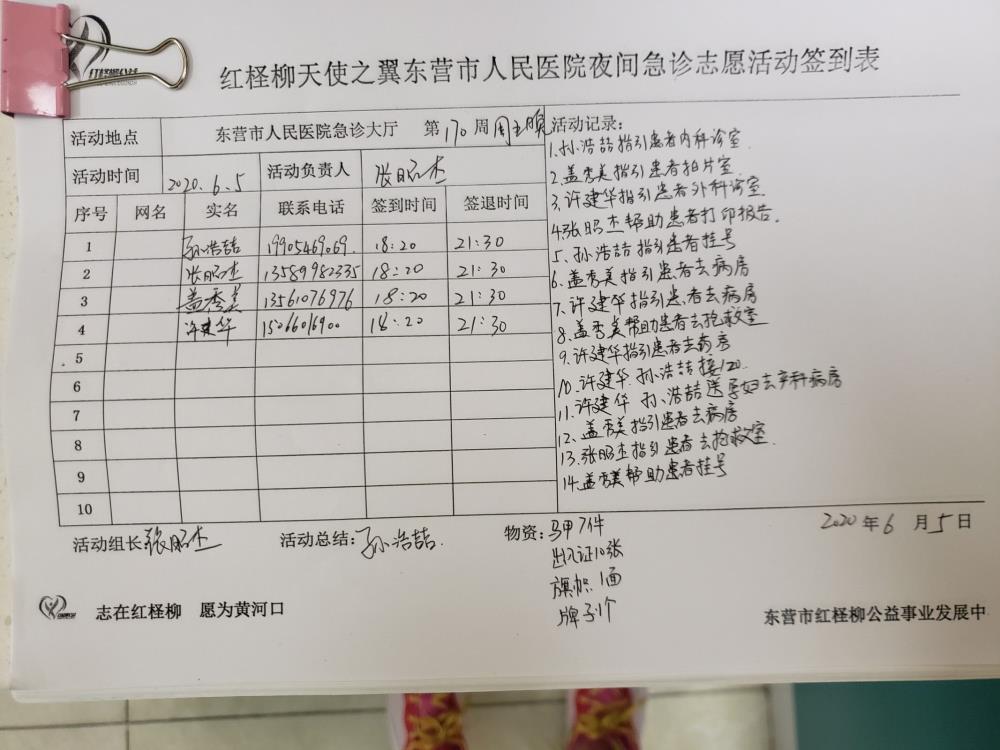 红柽柳天使之翼东营市人民医院夜间急诊志愿活动签到表
活动地点 东营市人民医院急诊大厅 第170周周五晚
活动时间 2020.6.5 活动负责人 张昭杰
序号 网名 实名 联系电话 签到时间 签退时间
1 孙浩喆 19905469069. 18:20 21:30
2 张昭杰 13589982335 18:20 21:30
3 盖秀美 13561076976 18:20 21:30
4 许建华 15066016900 18:20 21:30
5
6
7
8
9
10
活动记录:
1.孙浩喆指引患者内科诊室.
2.盖秀美指引患者拍片室.
3.许建华指引患者外科诊室
4.张昭杰帮助患者打印报告.
5.孙浩喆指引患者挂号
6.盖秀美指引患者去病房
7.许建华指引患者去病房
8.盖秀美帮助患者去抢救室
9.许建华指引患者去病房
10.许建华.孙浩喆接120.
11.许建华 孙浩喆送孕妇去产科病房
12.盖秀美指引患者去病房
13.张昭杰指引患者去抢救室.
14.盖秀美帮助患者挂号
活动组长:张昭杰 活动总结:孙浩喆. 物资:马甲7件
出入证10张
旗帜1面
牌子1个
2020年6月5日
志在红柽柳 愿为黄河口
东营市红柽柳公益事业发展中